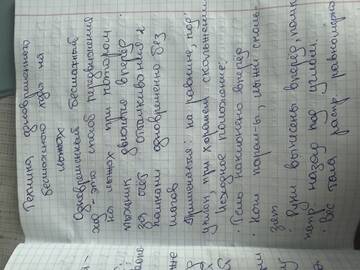 Техника одновременного
бесшажного хода на
лыжах
Одновременный бесшажный
ход - это способ передвижения
на лыжах при котором
лыжник движется вперёд
за счёт отталкиваний
палками одновременно без
шагов
Применяется: на равнине, под
уклон при хорошем скольжении
Исходное положение:
Тело наклонено вперёд
ноги парал-ы, лыжи сколь-
зят
Руки вынесены вперёд, палки
напр назад под углом.
Вес тела распр равномерно